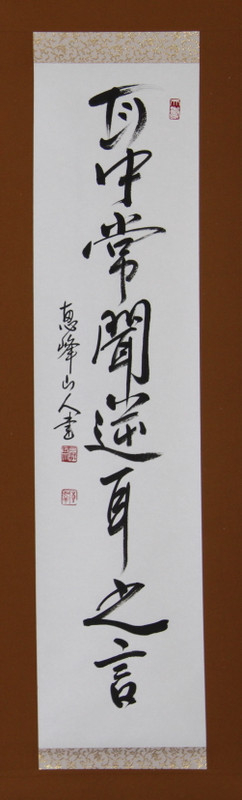 耳中常聞逆耳之言
恵峰山人書